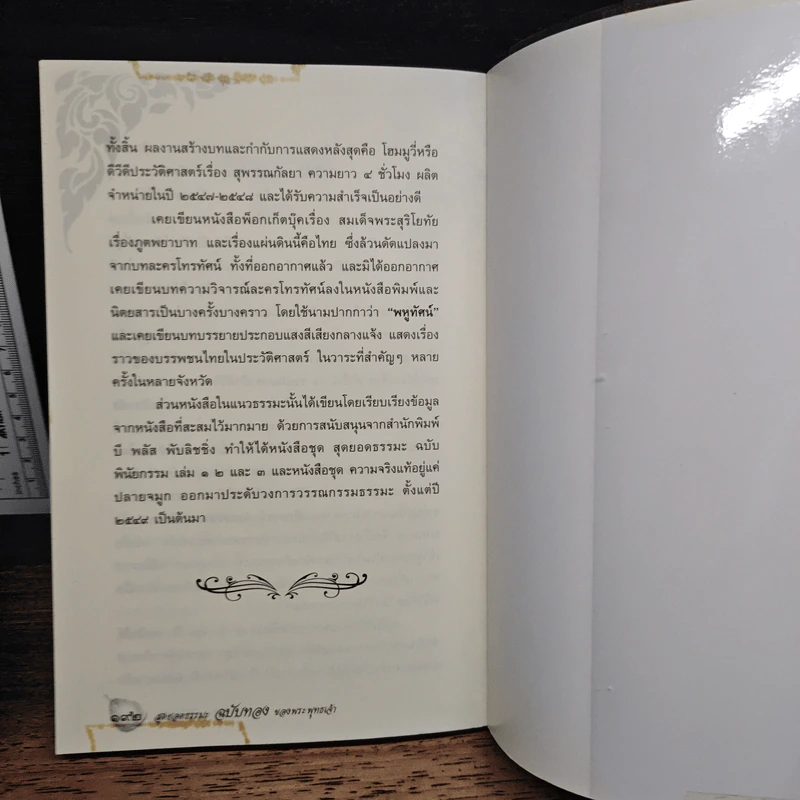 ทั้งสิ้น ผลงานสร้างบทและกำกับการแสดงหลังสุดคือ โฮมมูวี่หรือ
ดีวีดีประวัติศาสตร์เรื่อง สุพรรณกัลยา ความยาว ๔ ชั่วโมง ผลิต
จำหน่ายในปี ๒๕๔๗-๒๕๔๘ และได้รับความสำเร็จเป็นอย่างดี
เคยเขียนหนังสือพ็อกเก็ตบุ๊คเรื่อง สมเด็จพระสุริโยทัย
เรื่องภูตพยาบาท และเรื่องแผ่นดินนี้คือไทย ซึ่งล้วนดัดแปลงมา
จากบทละครโทรทัศน์ ทั้งที่ออกอากาศแล้ว และมิได้ออกอากาศ
เคยเขียนบทความวิจารณ์ละครโทรทัศน์ลงในหนังสือพิมพ์และ
นิตยสารเป็นบางครั้งบางคราว โดยใช้นามปากกาว่า “พหูทัศน์”
และเคยเขียนบทบรรยายประกอบแสงสีเสียงกลางแจ้ง แสดงเรื่อง
ราวของบรรพชนไทยในประวัติศาสตร์ ในวาระที่สำคัญๆ หลาย
ครั้งในหลายจังหวัด
ส่วนหนังสือในแนวธรรมะนั้นได้เขียนโดยเรียบเรียงข้อมูล
จากหนังสือที่สะสมไว้มากมาย ด้วยการสนับสนุนจากสำนักพิมพ์
บี พลัส พับลิชชิ่ง ทำให้ได้หนังสือชุด สุดยอดธรรมะ ฉบับ
พินัยกรรม เล่ม ๑ ๒ และ ๓ และหนังสือชุด ความจริงแท้อยู่แค่
ปลายจมูก ออกมาประดับวงการวรรณกรรมธรรมะ ตั้งแต่ปี
๒๕๔๙ เป็นต้นมา
๑๙๒ สุดยอดธรรมะ ฉบับทอง ของพระพุทธเจ้า